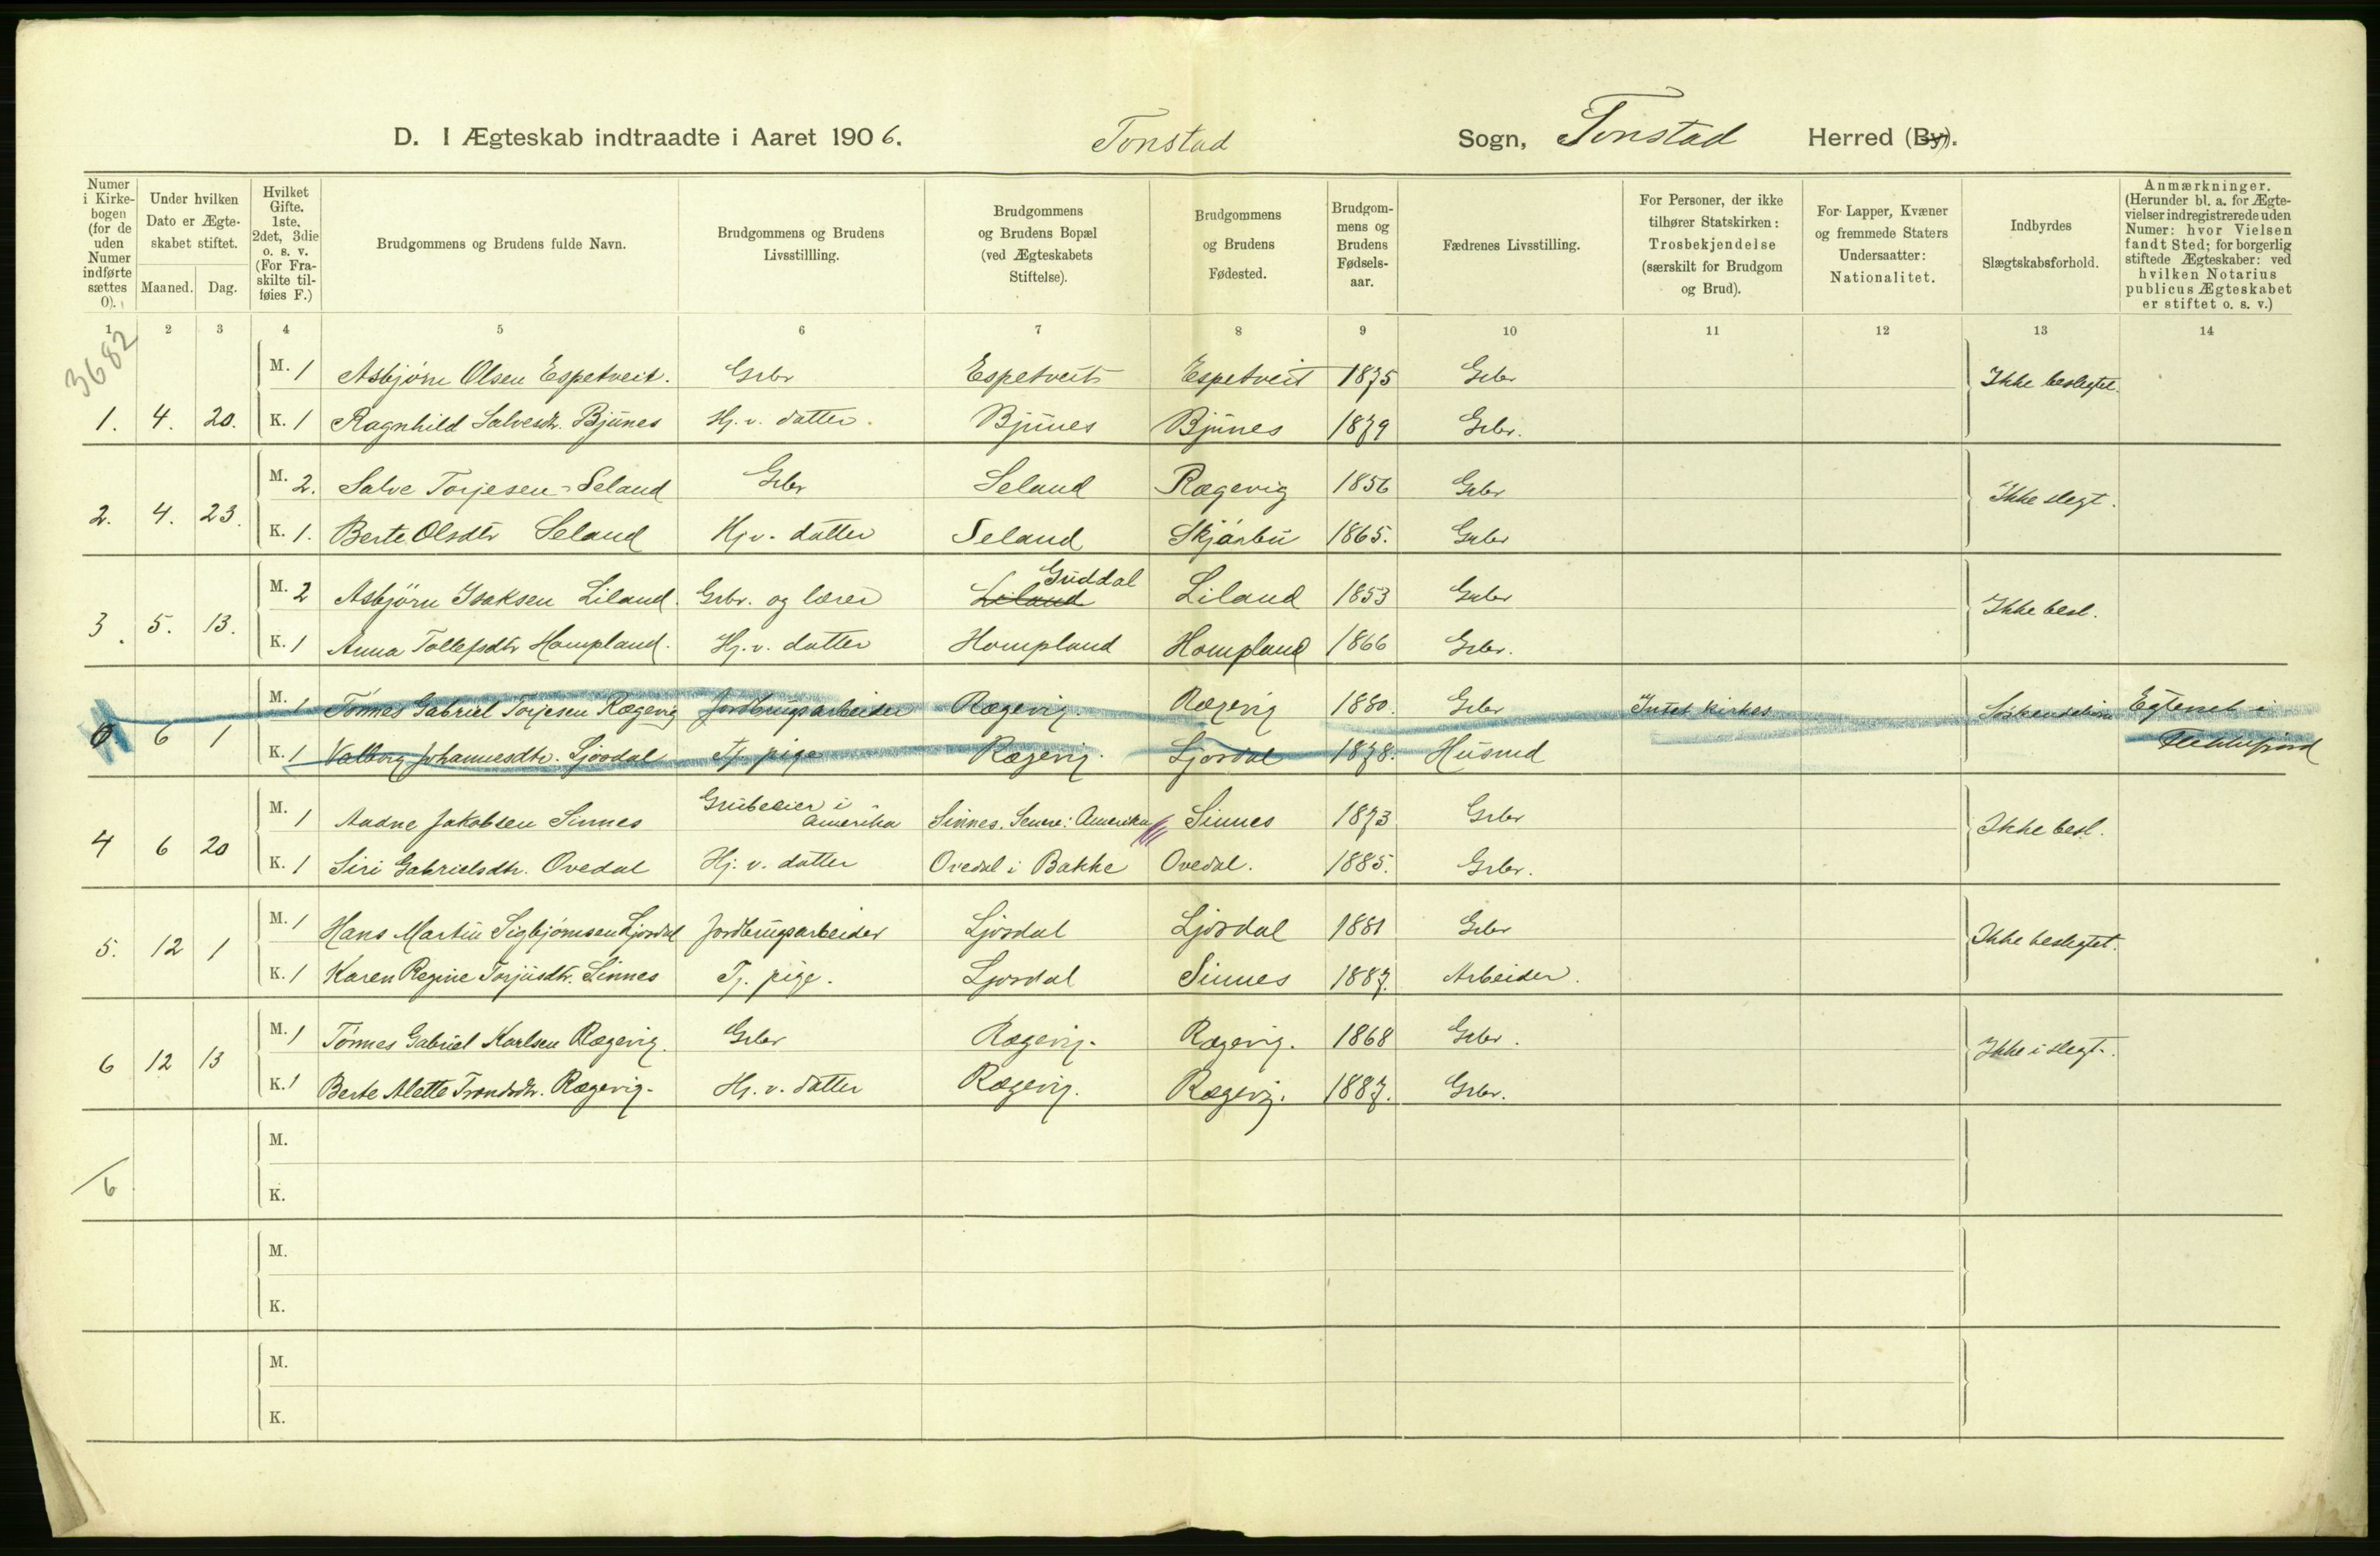 D. I Ægteskab indtraadte i Aaret 1906. Tonstad Sogn, Tonstad Herred (By).
Numer i Kirkebogen (for de uden Numer indførte sættes 0).
Under hvilken Dato er Ægteskabet stiftet.
Maaned. Dag.
Hvilket Gifte. 1ste, 2det, 3die o. s. v. (For Fraskilte tilføies F.)
Brudgommens og Brudens fulde Navn.
Brudgommens og Brudens Livsstillling.
Brudgommens og Brudens Bopæl (ved Ægteskabets Stiftelse).
Brudgommens og Brudens Fødested.
Brudgommens og Brudens Fødselsaar.
Fædrenes Livsstilling.
For Personer, der ikke tilhører Statskirken: Trosbekjendelse (særskilt for Brudgom og Brud).
For Lapper, Kvæner og fremmede Staters Undersaatter: Nationalitet.
Indbyrdes Slægtskabsforhold.
Anmærkninger. (Herunder bl. a. for Ægtevielser indregistrerede uden Numer: hvor Vielsen fandt Sted; for borgerlig stiftede Ægteskaber: ved hvilken Notarius publicus Ægteskabet er stiftet o. s. v.)
1 2 3 4 5 6 7 8 9 10 11 12 13 14
3682
M. 1 Asbjørn Olsen Espetveit. Grbr Espetveit Espetveit 1875 Grbr Ikke beslegtet.
1. 4. 20. K. 1 Ragnhild Salvesdtr. Bjunes Hj. v. datter. Bjunes Bjunes 1879 Grbr.
M. 2. Salve Torjesen Seland Grbr Seland Rægevig 1856 Grbr Ikke slegt.
2. 4. 23. K. 1. Berte Olsdtr Seland Hj v. datter Seland Skjárbu 1865. Grbr
M. 2 Asbjørn Isaksen Liland. Grbr. og lærer Liland Guddal Liland 1853 Grbr Ikke besl.
3. 5. 13. K. 1 Anna Tollefsdtr Hompland. Hj. v. datter Hompland Hompland 1866 Grbr.
M. 1 Tønnes Gabriel Torjesen Rægevig Jordbrugsarbeider Rægevig. Rægevig 1880. Grbr Intet kirkes Egteviet i
0 6 1 K. 1 Valborg Johannesdtr. Ljosdal Tj. pige Rægevig. Ljosdal 1878. Husmd Flekkefjord
M. 1 Aadne Jakobsen Sinnes Grubeeier i Amerika Sinnes. Senere: Amerika Sinnes 1873 Grbr Ikke besl.
4 6 20 K. 1 Siri Gabrielsdtr. Ovedal Hj. v. datter Ovedal i Bakke Ovedal. 1885. Grbr.
M. 1 Hans Martin Sigbjørnsen Ljosdal Jordbrugsarbeider Ljosdal Ljosdal 1881 Grbr Ikke beslegtet.
5. 12 1 K. 1 Karen Regine Torjusdtr. Sinnes Tj. pige. Ljosdal Sinnes 1887. Arbeider.
M. 1 Tønnes Gabriel Karlsen Rægevig. Grbr Rægevig. Rægevig. 1868 Grbr. Ikke i slegt.
6 12 13 K. 1 Berte Alette Trondsdtr. Rægevig. Hj. v. datter Rægevig. Rægevig. 1887. Grbr.
M.
6 K.
M.
K.
M.
K.